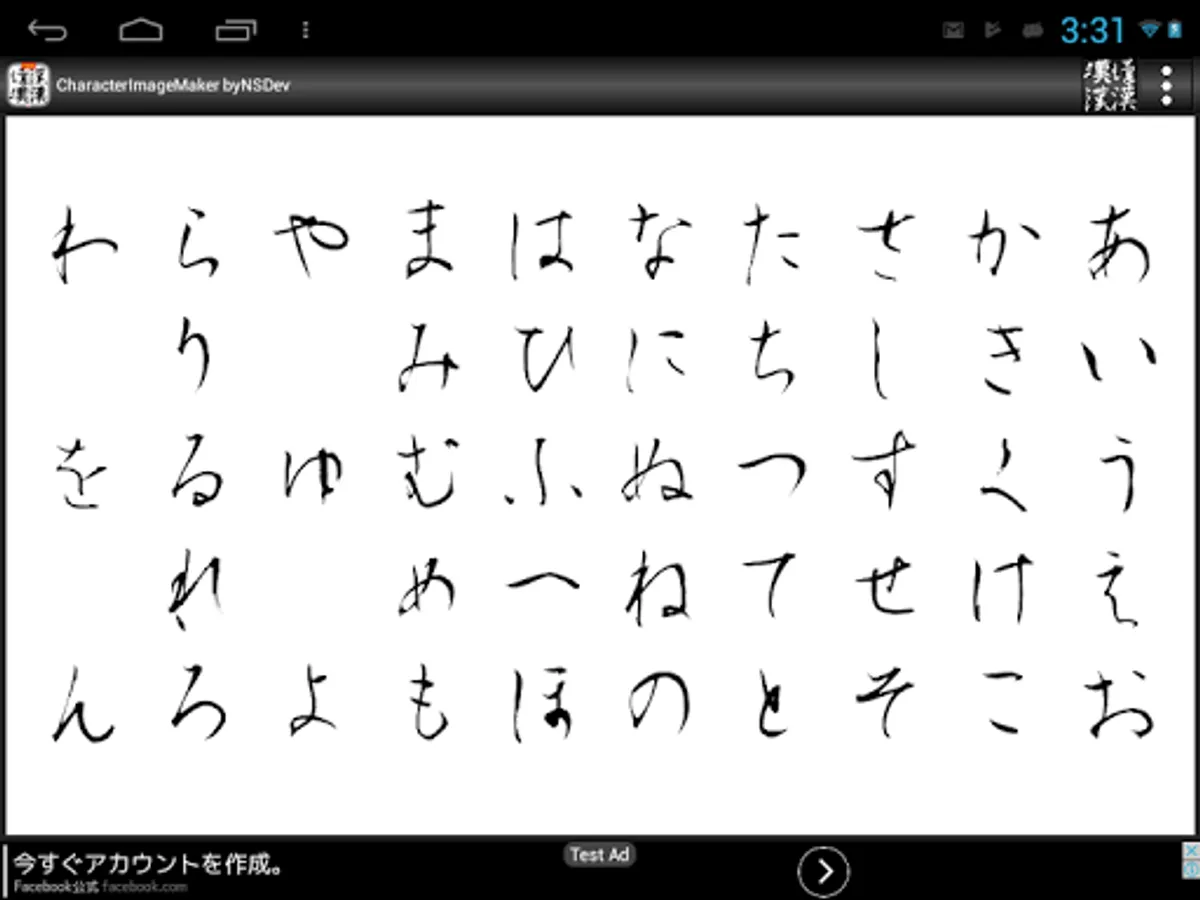 3:31
CharacterImageMaker byNSDev
漢漢
漢漢
あいうえお
かきくけこ
させすせそ
たちつてと
なにぬねの
はひふへほ
まみむめも
やゆよ
らりるれろ
わをん
今すぐアカウントを作成。
Facebook公式 facebook.com
Test Ad